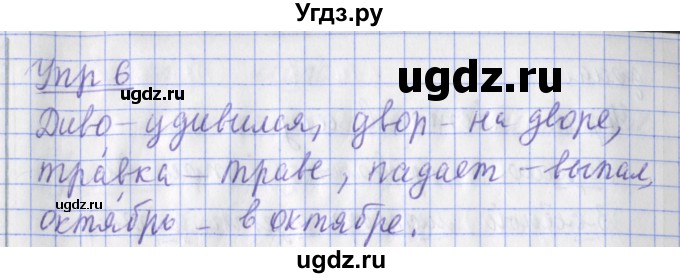 Угдз.ру
Упр 6
ugdz.ru
ugdz.ru
Диво - удивился, двор - на дворе,
тра́вка - траве, падает - выпал,
ugdz.ru
октя́брь - в октябре.
ugdz.ru
ugdz.ru